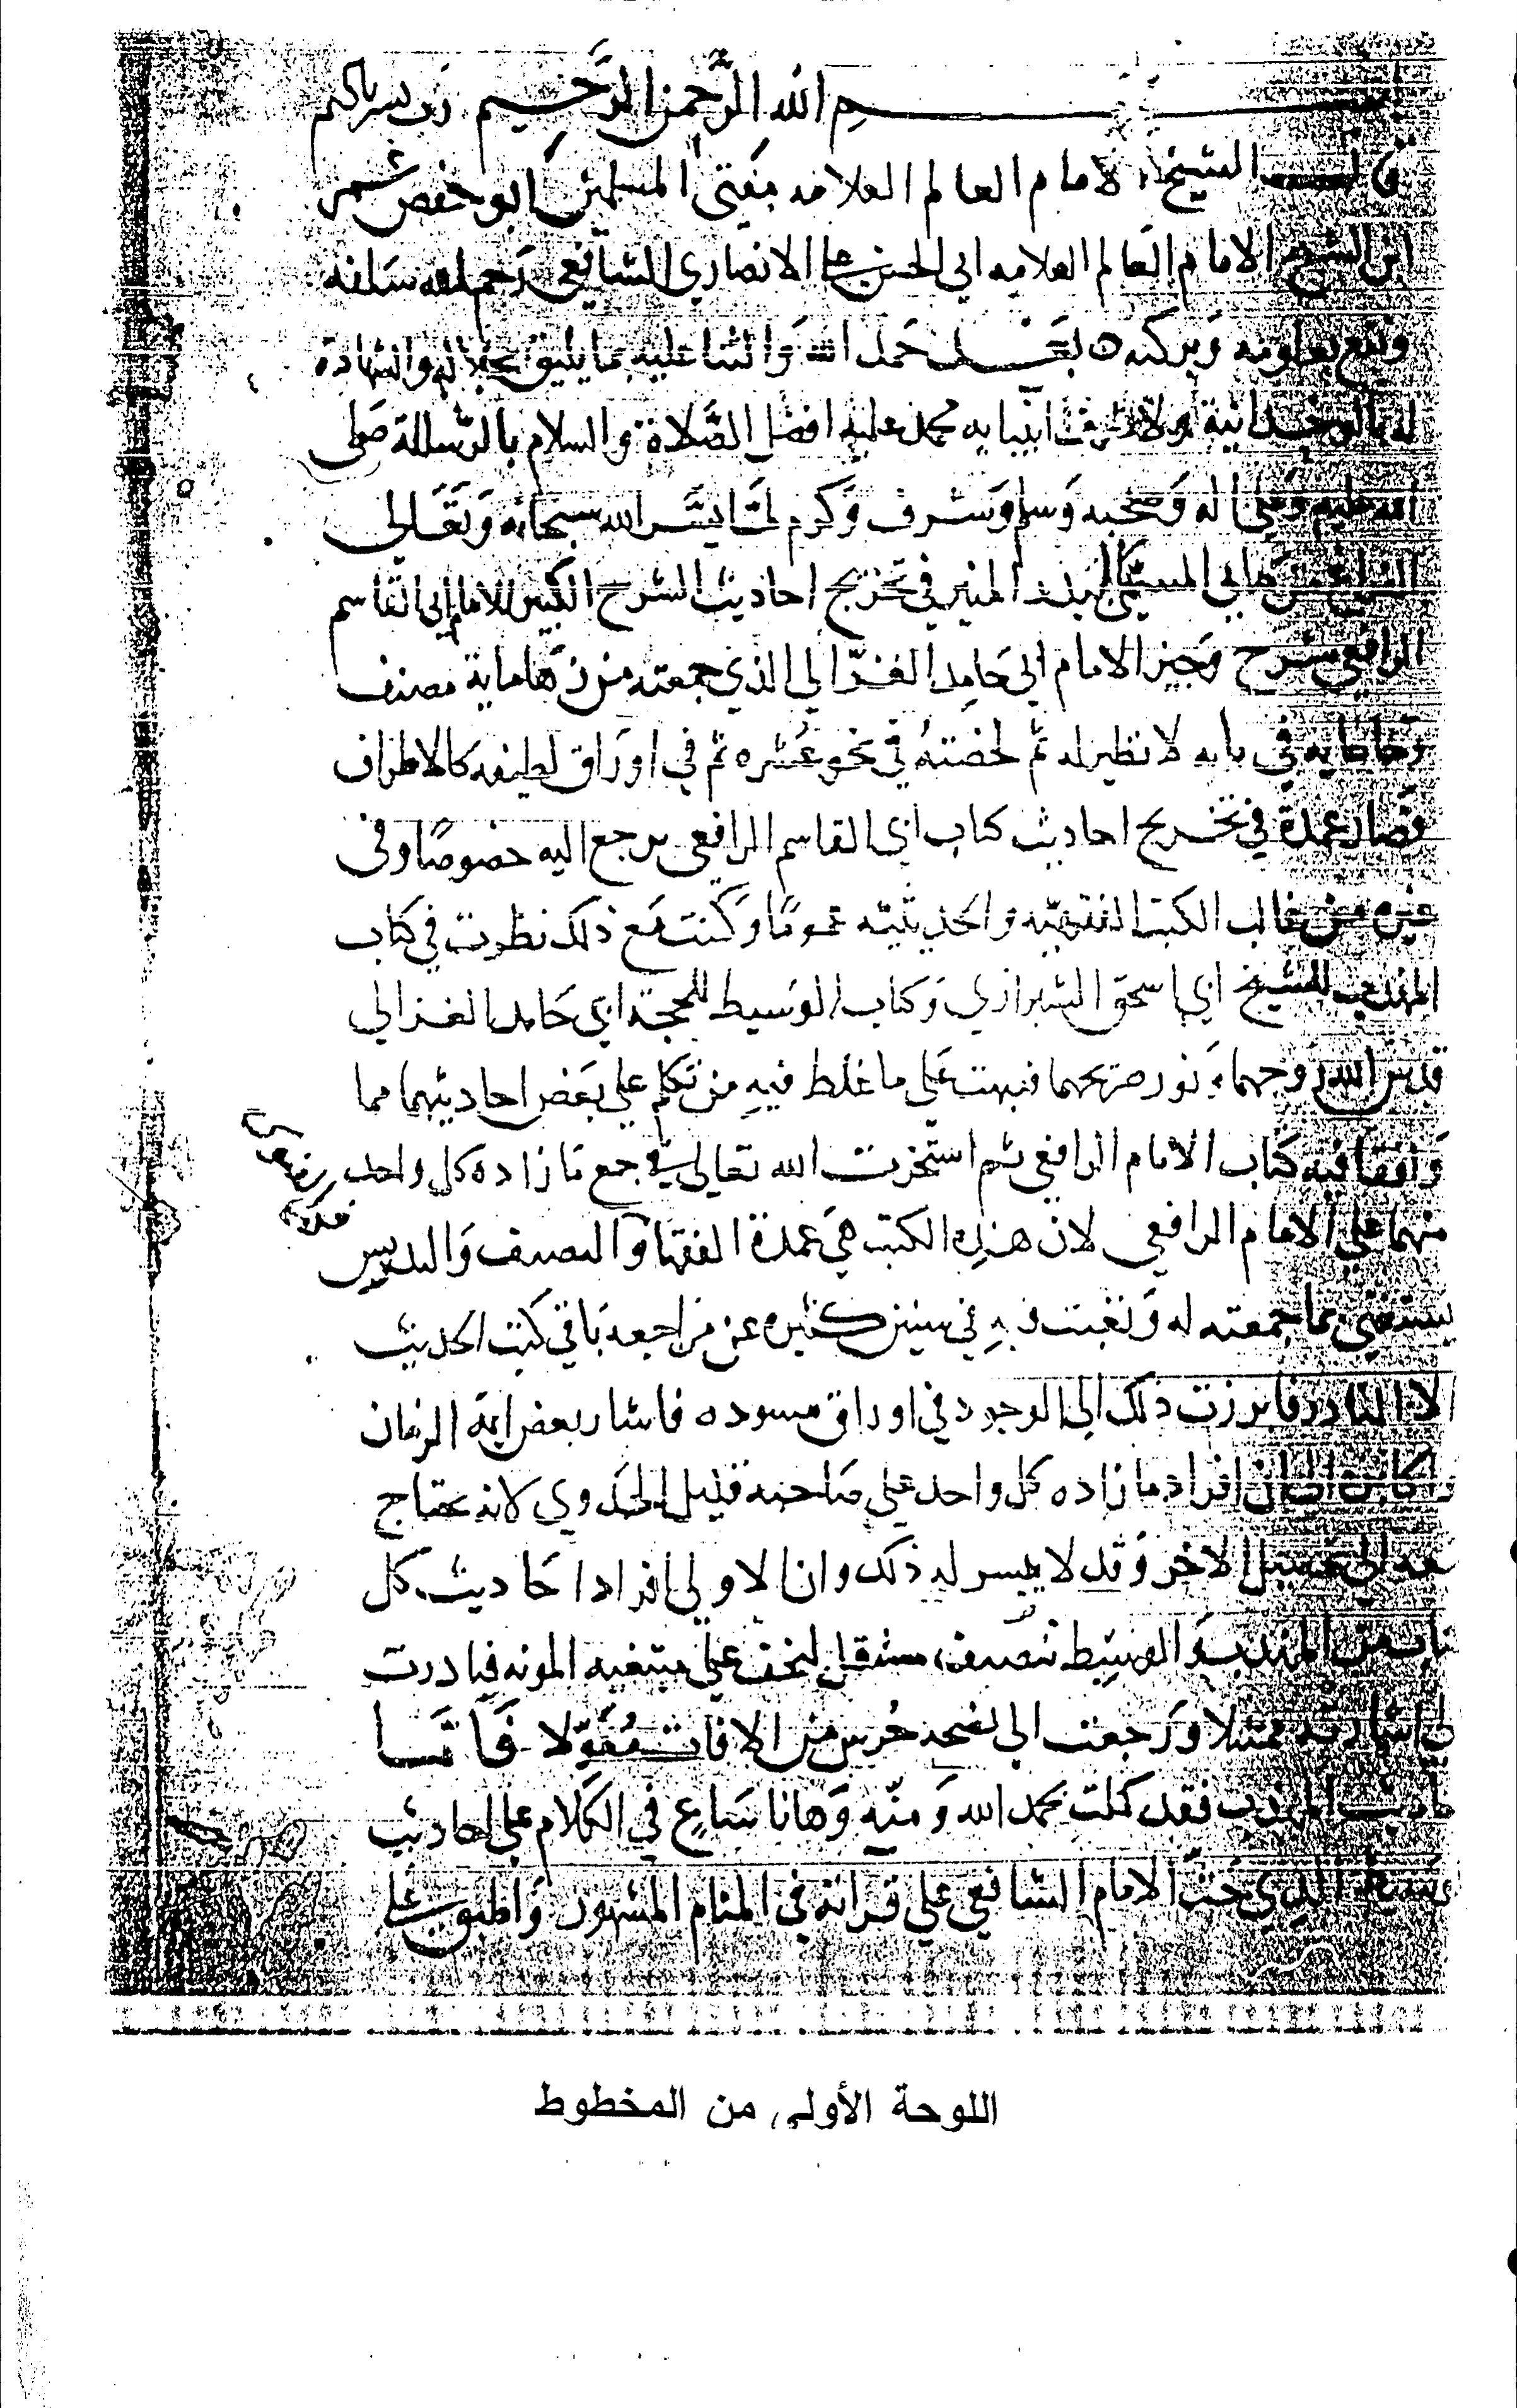 بسم الله الرحمن الرحيم رب يسر يا كريم
قال الشيخ الامام العالم العلامه مفتى المسلمين ابو حفص عمر
ابن الشيخ الامام العالم العلامه ابي الحسن علي الانصاري الشافعي رحم الله سلفه
ونفع بعلومه وبركته بعد حمد الله والثنا عليه بما يليق بجلاله والشهادة
له بالوحدانية ولاشرف انبيايه محمد عليه افضل الصلاة والسلام بالرسالة صلى
الله عليه وعلى اله وصحبه وسلم وشرف وكرم لما يسر الله سبحانه وتعالى
الفراغ من كتابي المسمى بالبدر المنير في تخريج احاديث الشرح الكبير للامام ابي القاسم
الرافعي شرح وجيز الامام ابي حامد الغزالي الذي جمعته من زها ماية مصنف
وجا غايه في بابه لا نظير له ثم لخصته في نحو عشره ثم في اوراق لطيفه كالاطراف
فصار عمدة في تخريج احاديث كتاب ابي القاسم الرافعي يرجع اليه خصوصا وفى
غيره من غالب الكتب الفقهيه والحديثيه عموما وكنت مع ذلك نظرت في كتاب
المهذب للشيخ ابي اسحق الشيرازي وكتاب الوسيط للحجة ابي حامد الغزالي
قدس الله روحهما ونور ضريحهما فنبهت على ما غلط فيه من تكلم علي بعض احاديثهما مما
وافقا فيه كتاب الامام الرافعي ثم استخرت الله تعالى في جمع ما زاده كل واحد
منهما على الامام الرافعي لان هذه الكتب هي عمدة الفقها والمصنف والمدرس
يستغني بما جمعته له وتعبت فيه في سنين كثيره عن مراجعه باقي كتب الحديث
الا النادر فابرزت ذلك الى الوجود في اوراق مسوده فاشار بعض ايمة الزمان
الى ان افراد ما زاده كل واحد على صاحبه قليل الجدوي لانه يحتاج
معه الى تحصيل الاخر وقد لا يتيسر له ذلك وان الاولى افراد احاديث كل
كتاب من المهذب والوسيط بتصنيف مستقل ليخف على مبتغيه المونه فبادرت
الى اشارته ممتثلا ورجعت الى نصحه حرس من الافات معولا فاما
احاديث المهذب فقد كملت بحمد الله ومنه وها انا شارع في الكلام على احاديث
الوسيط الذي حث الامام الشافعي علي قراته في المنام المشهور والمبوب علي
اللوحة الأولى من المخطوط